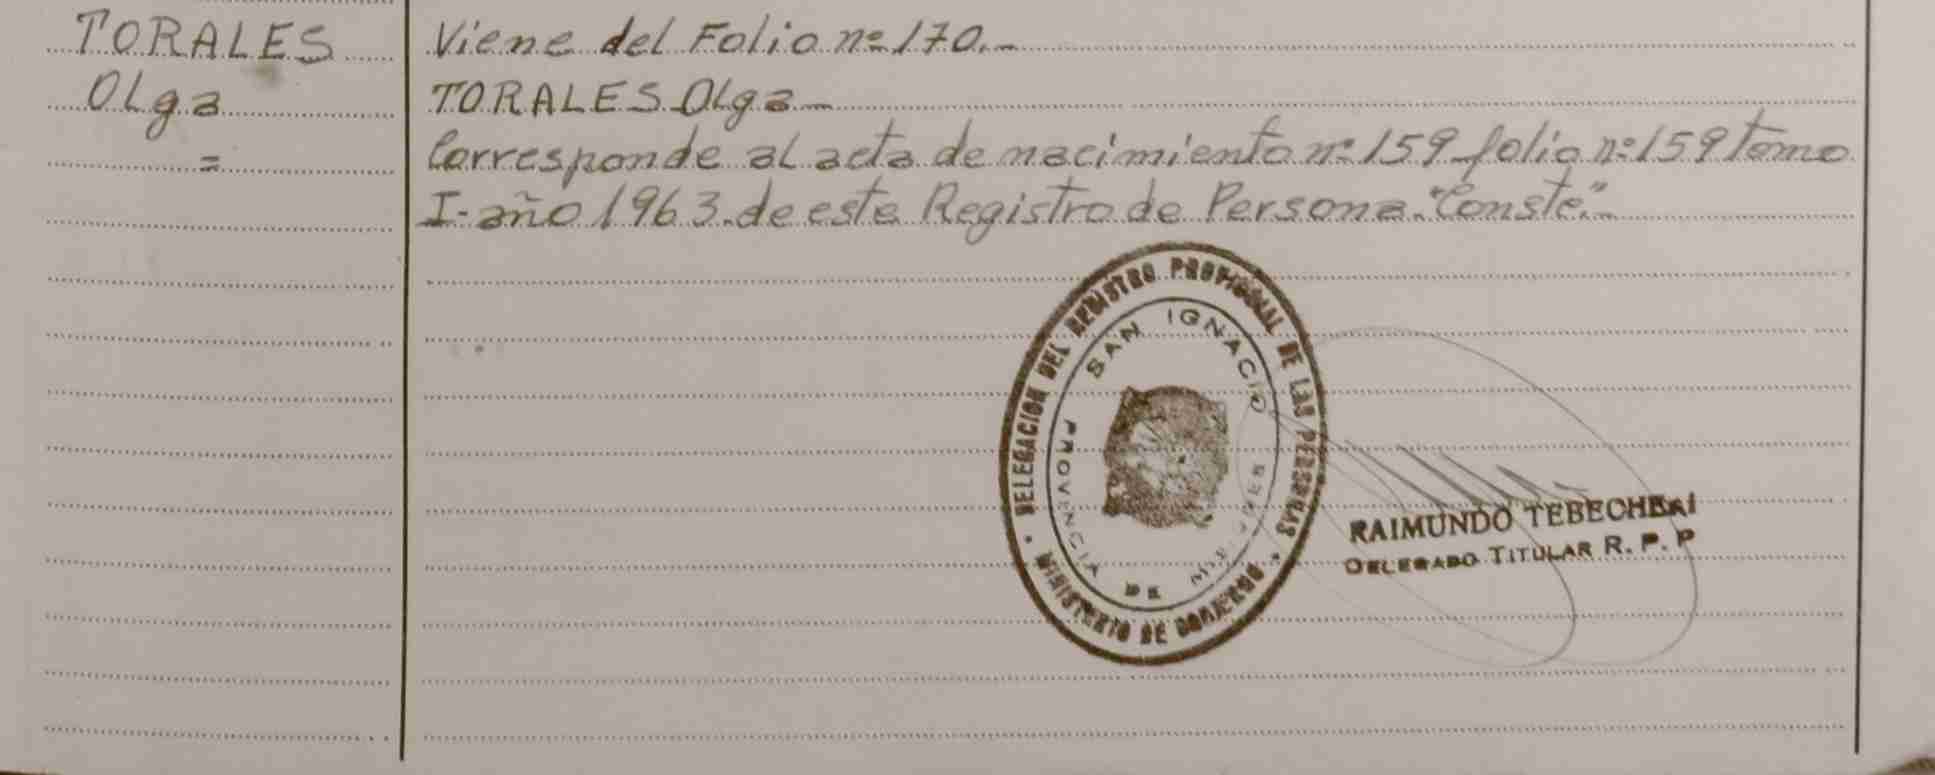 TORALES
Olga
=
Viene del Folio nº 170.-
TORALES Olga-
Corresponde al acta de nacimiento nº 159 folio nº 159 tomo
I- año 1963.- de este Registro de Persona. "Conste".-
DELEGACION DEL REGISTRO PROVINCIAL DE LAS PERSONAS
MINISTERIO DE GOBIERNO
SAN IGNACIO
PROVINCIA DE MISIONES
RAIMUNDO TEBECHERI
DELEGADO TITULAR R. P. P